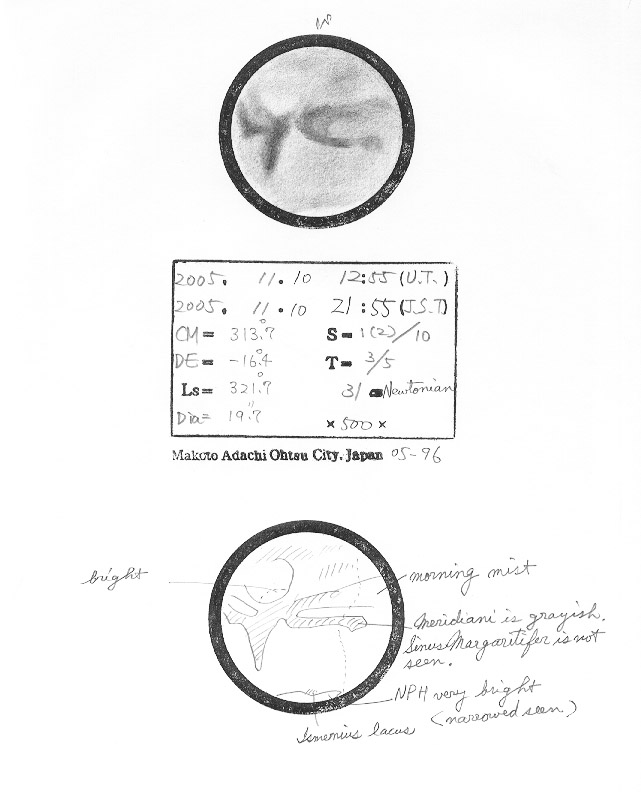 N
2005. 11.10 12:55 (U.T.)
2005. 11.10 21:55 (J.S.T)
CM= 313.°7 S= 1(2)/10
DE= -16.°4 T= 3/5
Ls= 321.°7 31 Newtonian
Dia= 19."7 ×500×
Makoto Adachi Ohtsu City. Japan 05-96
bright
morning mist
Meridiani is grayish.
Sinus Margaritifer is not
seen.
NPH very bright
(narrowed seen)
Ismenius lacus